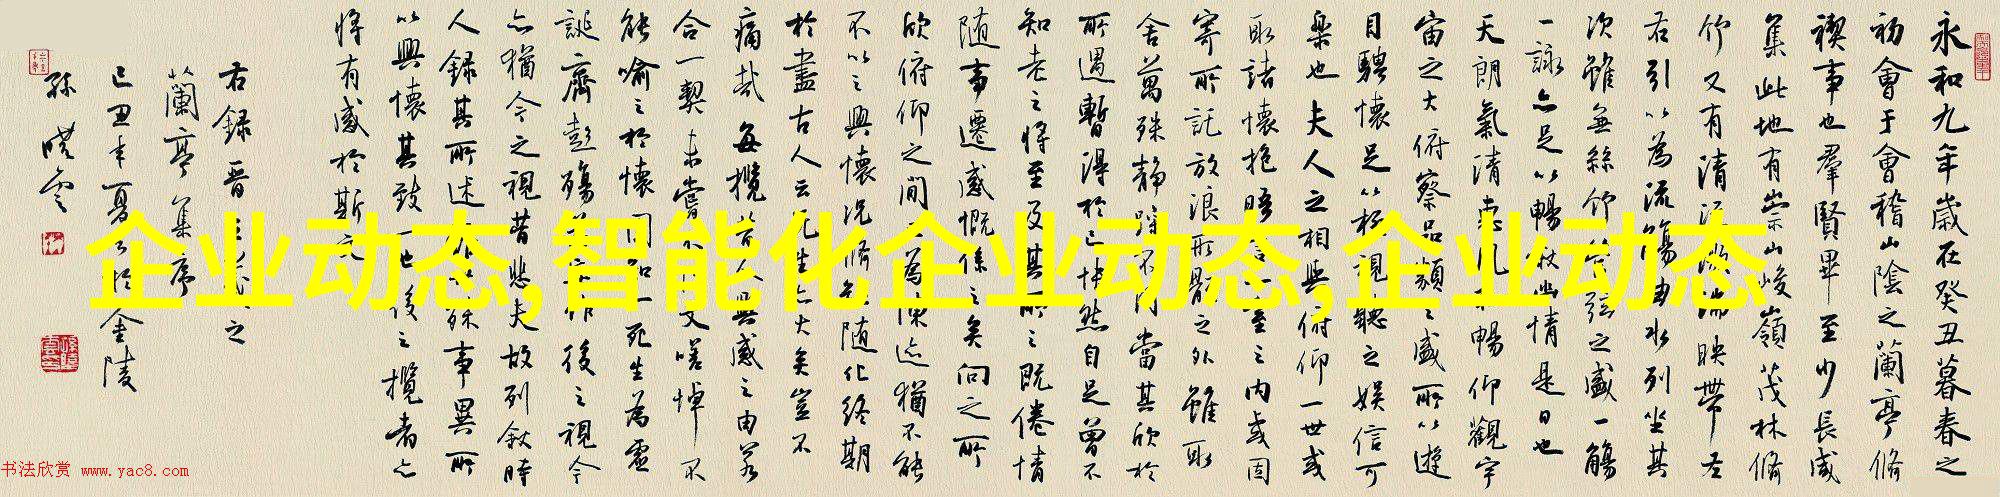 永和九年歲在癸丑暮春之
初會于會稽山陰之蘭亭脩
禊事也羣賢畢至少長咸
集此地有崇山峻嶺茂林脩
竹又有清流激湍映帶左
右引以為流觴曲水列坐其
次雖無絲竹管弦之盛一觴
一詠亦足以暢敘幽情是日也
天朗氣清惠風和暢仰觀宇
宙之大俯察品類之盛所以遊
目騁懷足以極視聽之娛信可
樂也夫人之相與俯仰一世或
取諸懷抱晤言一室之內或因
寄所託放浪形骸之外雖取
舍萬殊靜躁不同當其欣於
所遇暫得於己怏然自足曾不
知老之將至及其所之既倦情
隨事遷感慨係之矣向之所
欣俯仰之間已為陳迹猶不能
不以之興懷況脩短隨化終期
於盡古人云死生亦大矣豈不
痛哉每攬昔人興感之由若
合一契未嘗不臨文嗟悼不
能喻之於懷固知一死生為虛
誕齊彭殤為妄作後之視今
亦猶今之視昔悲夫故列敘時
人錄其所述雖世殊事異所
以興懷其致一也後之攬者亦
將有感於斯文
右錄晉王羲之
蘭亭集序
己丑年夏月於金陵
孫曉雲
企业动态,智能化企业动态,企业动态
书法欣赏 www.yac8.com